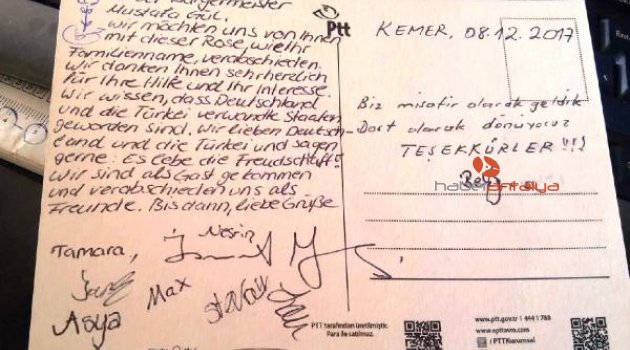 der Bürgermeister
Mustafa Gül,
wir möchten uns von Ihnen
mit dieser Rose, wie Ihr
Familienname, verabschieden.
Wir danken Ihnen sehr herzlich
für Ihre Hilfe und Ihr Interesse.
Wir wissen, dass Deutschland
und die Türkei verwandte Staaten
geworden sind. Wir lieben Deutsch-
land und die Türkei und sagen
gerne: Es lebe die Freudschaft!!
Wir sind als Gast gekommen
und verabschieden uns als
Freunde. Bis dann, liebe Grüße
Tamara,
Nesrin
Max
Asya
Ptt
KEMER, 08.12.2017
Biz misafir olarak geldik
Dost olarak dönüyoruz
TEŞEKKÜRLER !!!
haberantalya
PTT tarafından üretilmiştir.
Para ile satılmaz.
www.ptt.gov.tr | 444 1 788
www.epttavm.com
/PTTKurumsal